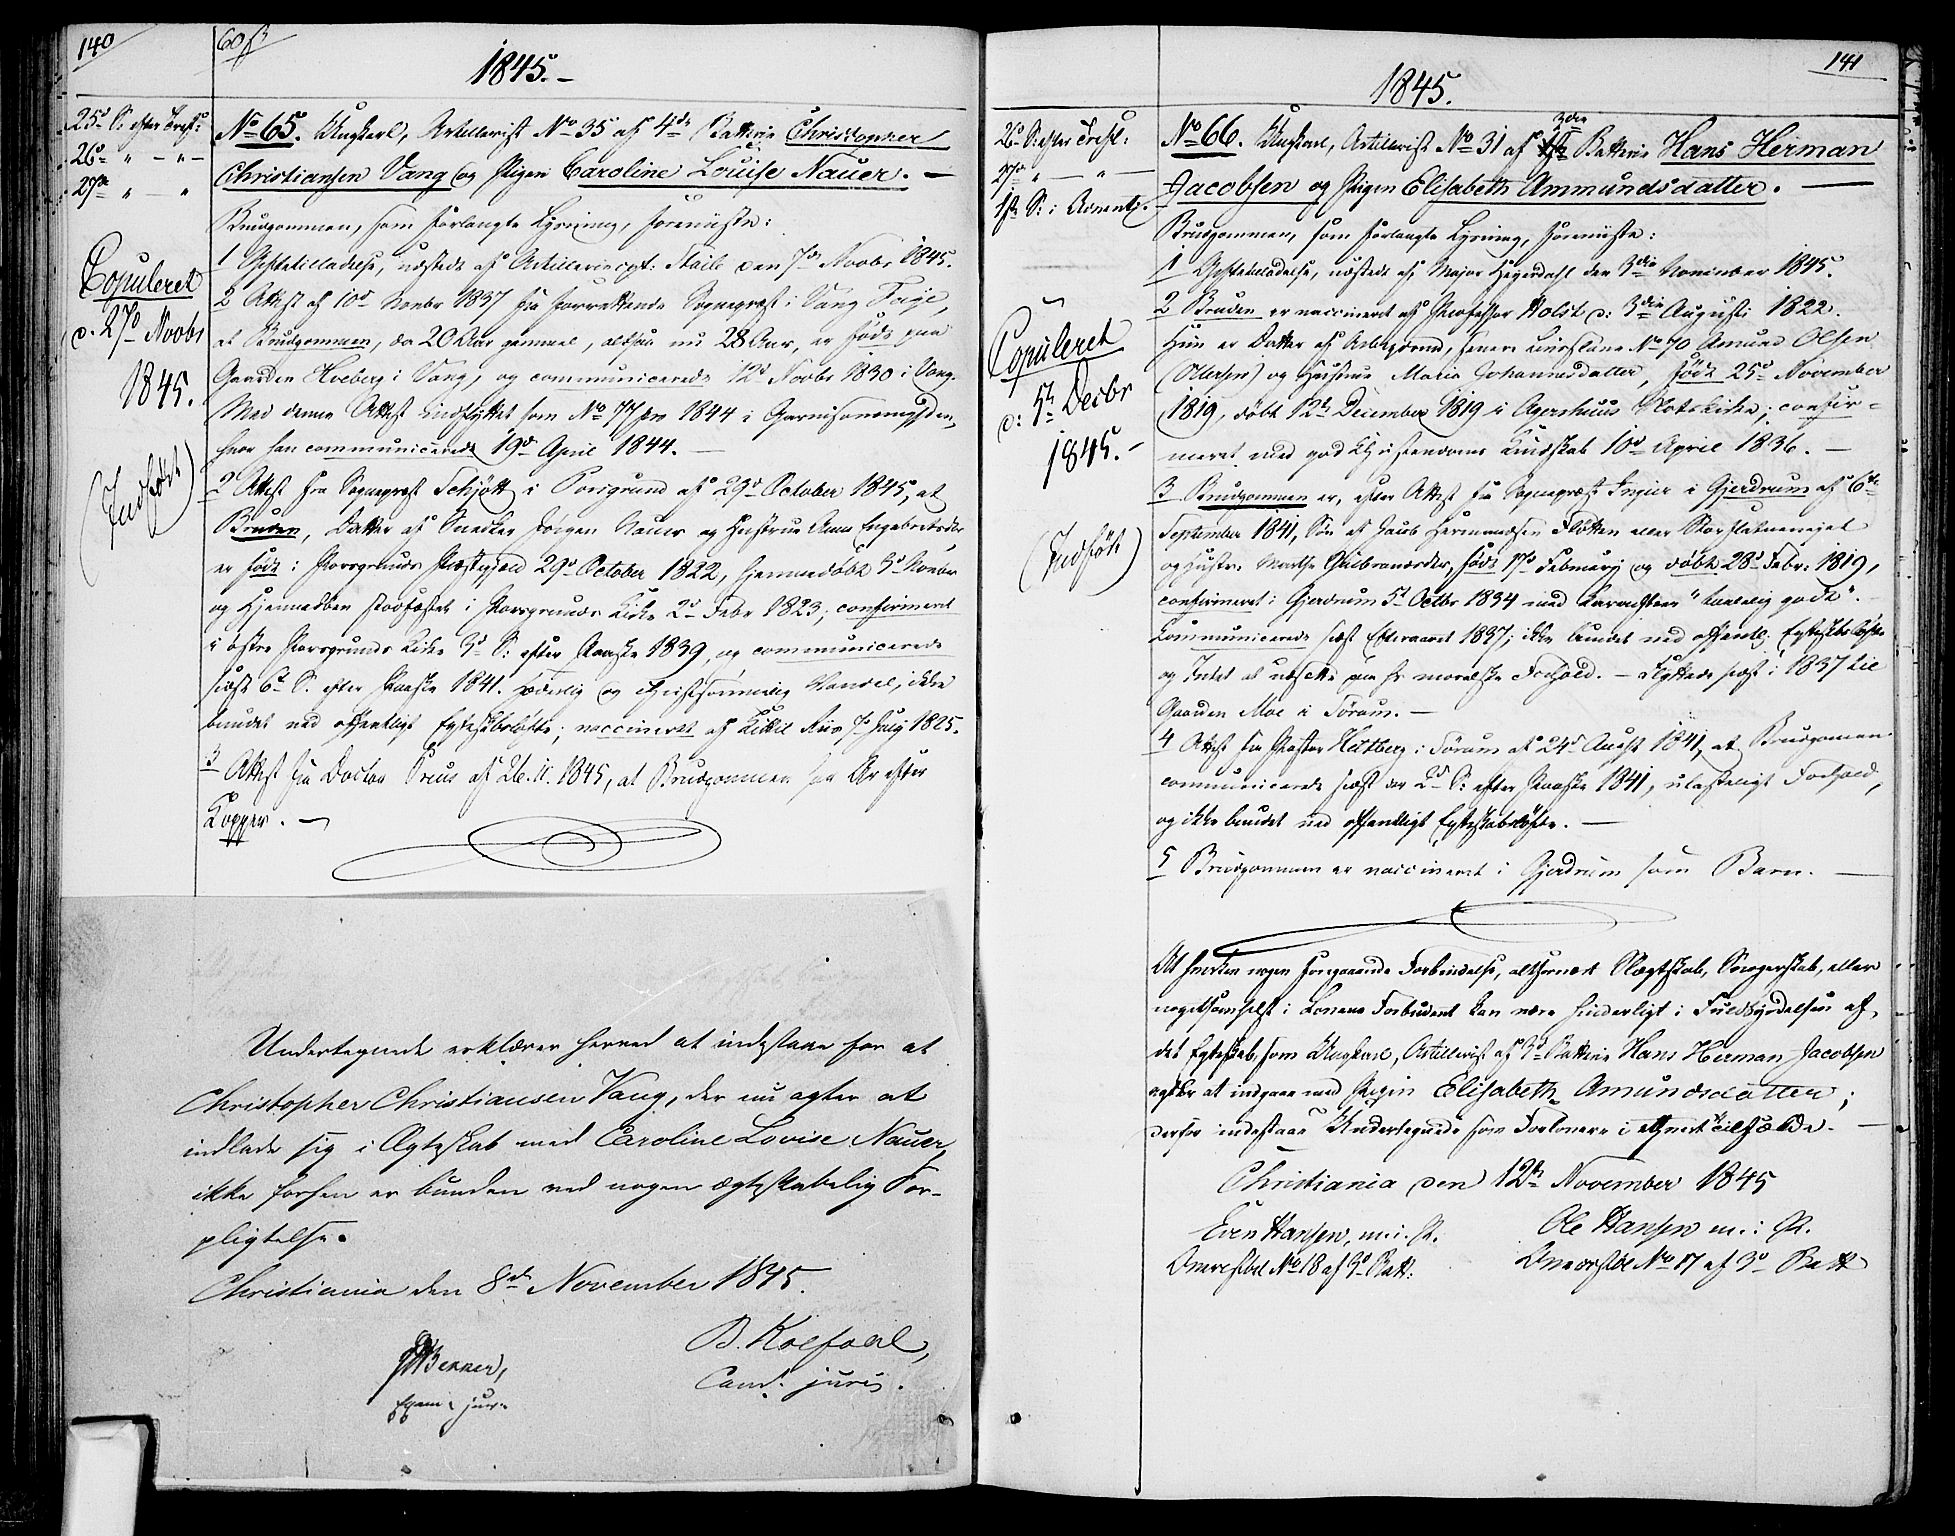 140
60 ß
1845.
25d S: efter Tref:
26d " — " —
27de " — "
Copuleret
d. 27d Novbr
1845.
(Indført)
No 65. Ungkarl, Artillerist No 35 af 4de Batterie Christopher
Christiansen Vang og Pigen Caroline Louise Nauer. —
Brudgommen, som forlangte Lysning, foreviste:
1 Giftetilladelse, udstedt af Artilleriecpt: den 7d Novbr 1845.
2 Attest af 10d Novbr 1837 fra Sognepræst i Vang
at Brudgommen, da 20 Aar gammel, altsaa nu 28 Aar, er født paa
Gaarden Hoeberg i Vang, og communicerede 12d Novbr 1830 i Vang.
Med denne Attest indflyttet som No 77 pro 1844 i Garnisonsmenigheden,
hvor han communicerede 19d April 1844. —
2 Attest fra Sognepræst Schjøtt i Porsgrund af 29d October 1845, at
Bruden, Datter af Snedker Jørgen Nauer og Hustrue Anne Engebretsdtr
er født i Porsgrunds Præstegjeld 29d October 1822, hjemmedøbt 3d Novbr
og Hjemmedaaben stadfæstet i Porsgrunds Kirke 2d Febr 1823; confirmeret
i østre Porsgrunds Kirke 3d S: efter Paaske 1839, og communicerede
sidst 6d S. efter Paaske 1841. hæderlig og christsømmelig Vandel, ikke
bundet ved offentligt Egteskabsløfte; vaccineret af Kittil Riis 7d July 1825.
3 Attest fra Doctor af 26.11.1845, at Brudgommen har Ar efter
Kopper. —
Undertegnede erklærer herved at indestaae for at
Christopher Christiansen Vang, der nu agter at
indlade sig i Ægteskab med Caroline Lovise Nauer,
ikke forhen er bunden ved nogen ægteskabelig For-
pligtelse.
Christiania den 8de November 1845.
B. Koefoed,
Cand. juris.
Benner,
Exam. jur.
141
1845.
26d S: efter Tref:
27de " — " —
1ste S: i Advent.
Copuleret
d: 5te Decbr
1845.
(Indført)
No 66. Ungkarl, Artillerist No 31 af 3die Batterie Hans Herman
Jacobsen og Pigen Elisabeth Ammundsdatter. —
Brudgommen, som forlangte Lysning, foreviste:
1 Giftetilladelse, udstedt af Major Hegerdahl den 3die November 1845.
2 Bruden er vaccineret af Professor Holst d: 3die August 1822.
Hun er Datter af No 70 Amund Olsen
(Ollersen) og Hustrue Maria Johannesdatter, født 25d November
1819, døbt 12te December 1819 i Agershuus Slotskirke; confir-
meret med god Christendoms Kundskab 10d April 1836. —
3 Brudgommen er, efter Attest fra Sognepræst Ingier i Gjerdrum af 6te
September 1841, Søn af Jacob Hermandsen Flötten eller
og Hustr: Marthe Gulbrandsdtr, født 17d Februarij og døbt 28d Febr. 1819,
confirmeret i Gjerdrum 5te Octbr 1834 med Karakteren "temmelig godt".
Communicerede sidst Efteraaret 1837; ikke bundet ved offentlig Egteskabsløfte
og Intet at udsætte paa hs moralske Forhold. — Flyttede sidst i 1837 til
Gaarden Moe i Sørum. —
4 Attest fra Pastor Heltberg i Sørum af 24d August 1841, at Brudgommen
communicerede sidst der 2d S: efter Paaske 1841, ulasteligt Forhold,
og ikke bundet ved offentligt Egteskabsløfte. —
5 Brudgommen er vaccineret i Gjerdrum som Barn. —
At hverken nogen foregaaende Forbindelse, altfornært Slægtskab, Svogerskab, eller
nogetsomhelst i Lovene Forbudent kan være hinderligt i Fuldbyrdelsen af
det Egteskab, som Ungkarl, Artillerist af 3d Batterie Hans Herman Jacobsen
agter at indgaae med Pigen Elisabeth Amundsdatter;
derfor indestaae Undertegnede som Forlovere i ethvert Tilfælde. —
Christiania den 12te November 1845
Even Hansen, m. i. P.
No 18 af 3d Batt:
Ole Hansen m. i. P.
No 17 af 3d Batt